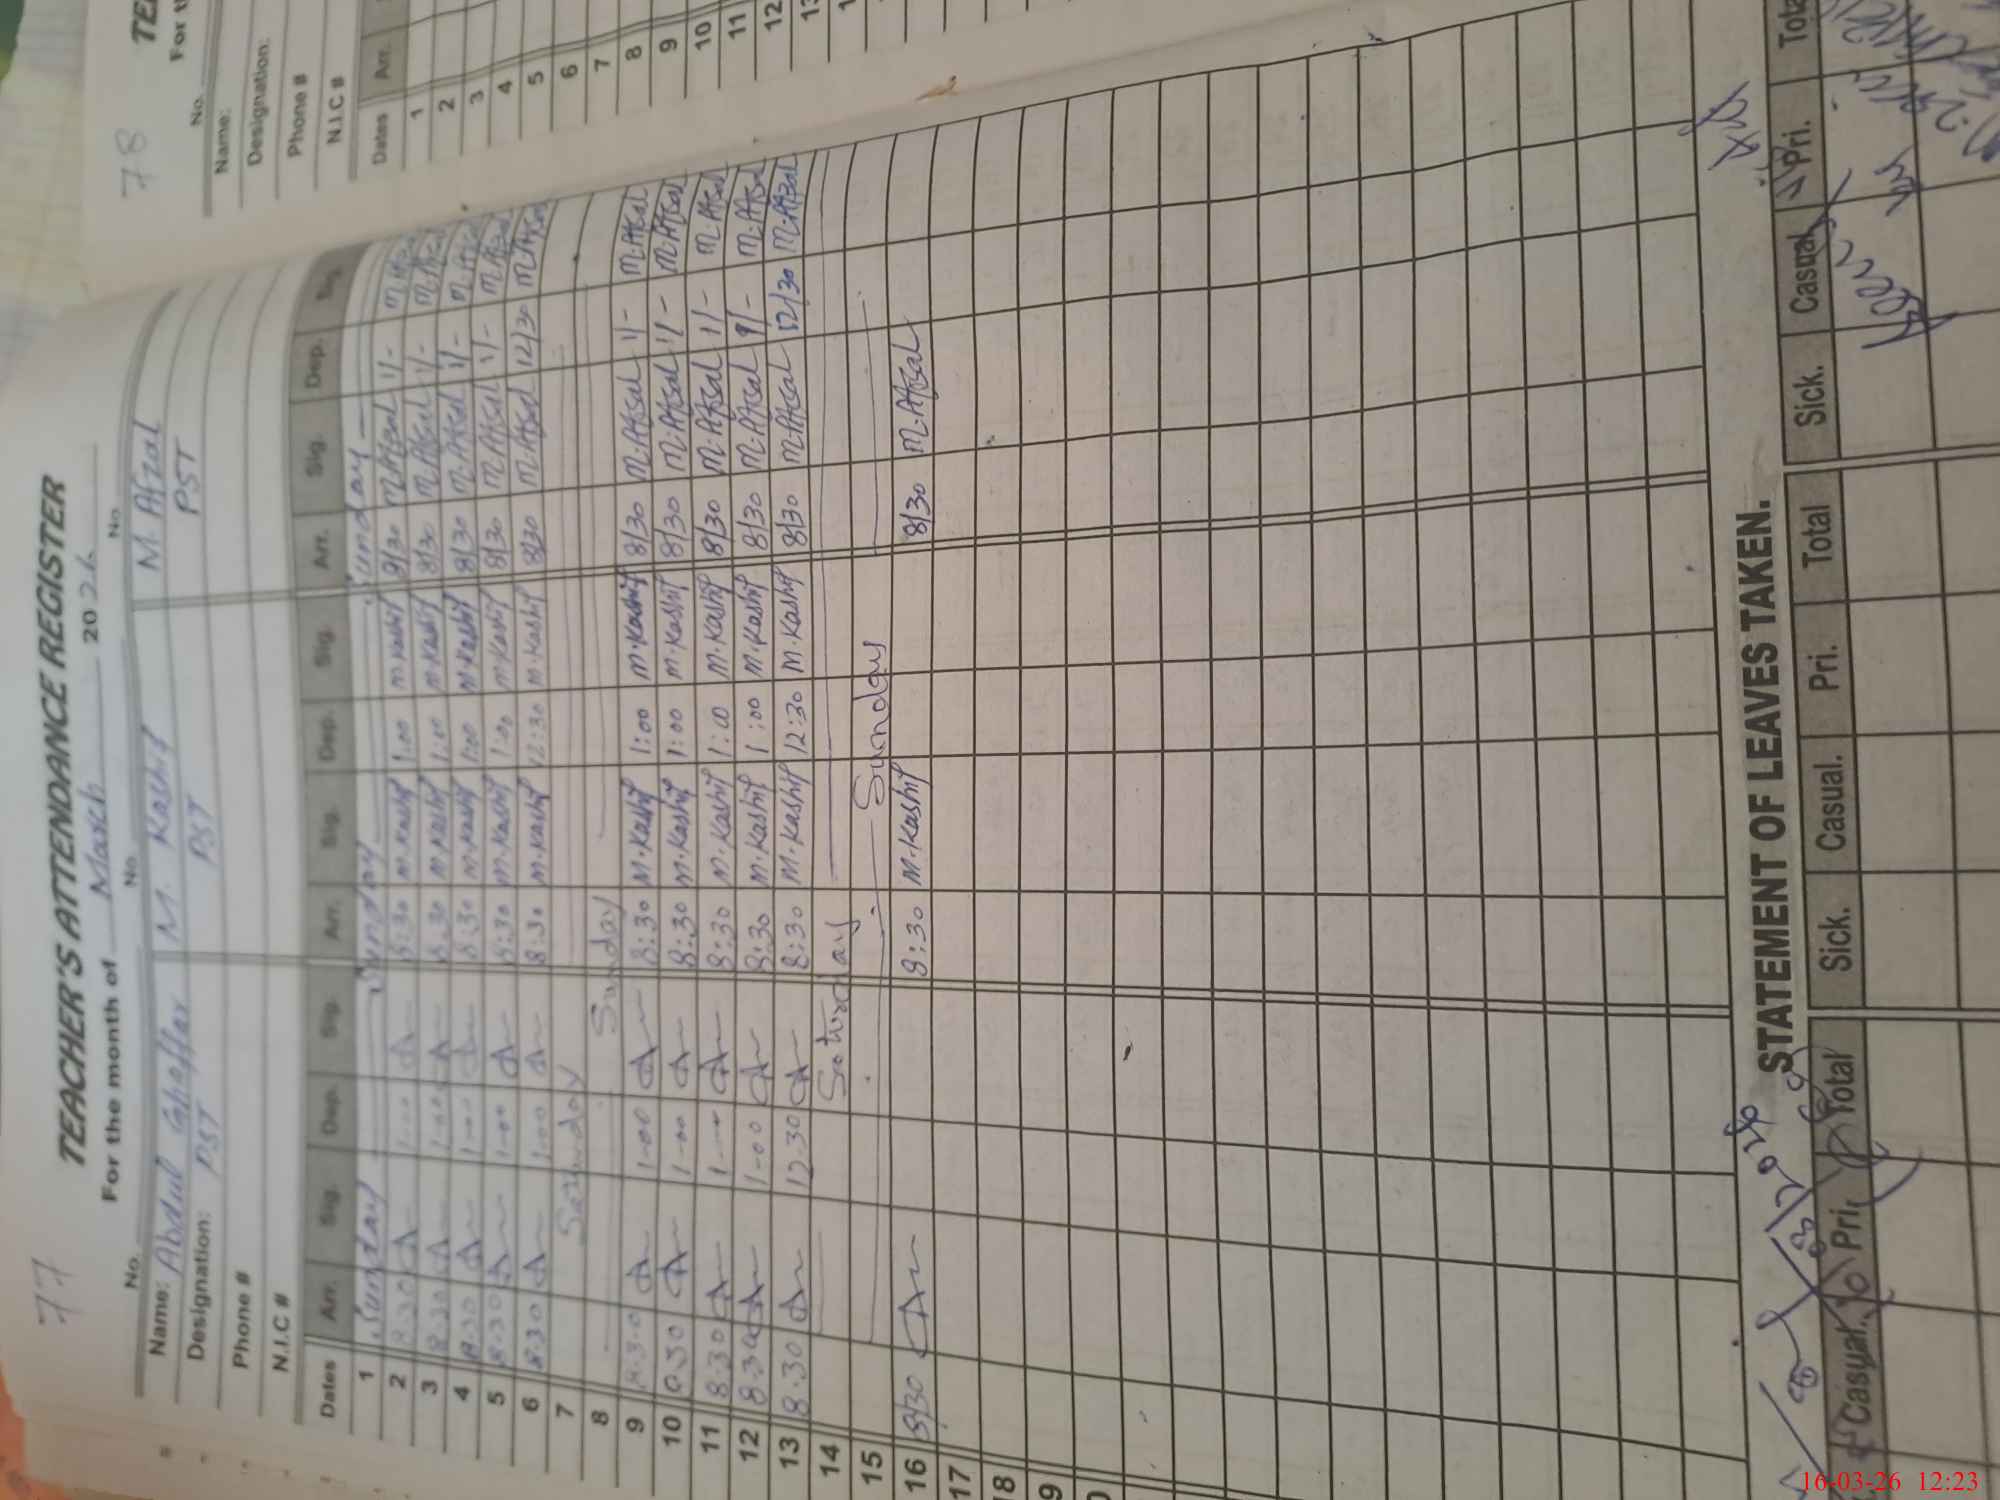 77
TEACHER'S ATTENDANCE REGISTER
For the month of March 2026
No. No. No.
Name: Abdul Ghaffar M. Kashif M. Afzal
Designation: PST PST PST
Phone #
N.I.C #
Dates Arr. Sig. Dep. Sig. Arr. Sig. Dep. Sig. Arr. Sig. Dep. Sig.
1 Sunday Sunday Sunday
2 8.30 1.00 8:30 M.Kashif 1:00 M.Kashif 8/30 M.Afzal 1/- M.Afzal
3 8.30 1.00 8:30 M.Kashif 1:00 M.Kashif 8/30 M.Afzal 1/- M.Afzal
4 8.30 1.00 8:30 M.Kashif 1:00 M.Kashif 8/30 M.Afzal 1/- M.Afzal
5 8.30 1-00 8:30 M.Kashif 1:00 M.Kashif 8/30 M.Afzal 1/- M.Afzal
6 8.30 1.00 8:30 M.Kashif 12:30 M.Kashif 8/30 M.Afzal 12/30 M.Afzal
7
8 Sunday
9 8.30 1-00 8:30 M.Kashif 1:00 M.Kashif 8/30 M.Afzal 1/- M.Afzal
10 1-00 8:30 M.Kashif 1:00 M.Kashif 8/30 M.Afzal 1/- M.Afzal
11 8.30 8:30 M.Kashif 1:00 M.Kashif 8/30 M.Afzal 1/- M.Afzal
12 8.30 1-00 8:30 M.Kashif 1:00 M.Kashif 8/30 M.Afzal M.Afzal
13 8.30 12.30 8:30 M.Kashif 12:30 M.Kashif 8/30 M.Afzal 12/30 M.Afzal
14 Saturday
15 Sunday
16 8/30 8:30 M.Kashif 8/30 M.Afzal
17
18
STATEMENT OF LEAVES TAKEN.
Casual. Pri. Total Sick. Casual. Pri. Total Sick. Casual. Pri. Total
78
No.
Name:
Designation:
Phone #
N.I.C #
Dates Arr.
1
2
3
4
5
6
7
8
9
10
11
12
13
16-03-26 12:23